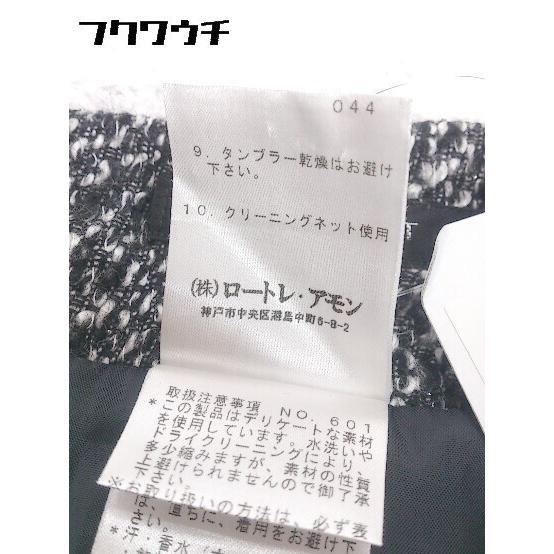 フクワウチ
044
9. タンブラー乾燥はお避け
下さい。
10. クリーニングネット使用
(株)ロートレ・アモン
神戸市中央区港島中町6-8-2
取扱注意事項 NO. 601
*この製品はデリケートな素材
を使用しています。水洗いや
ドライクリーニングにより、
多少縮みますが、素材の性質
上避けられませんので御了承
下さい。
※お取り扱いの方法は、必ず表
は、直ちに、着用をお避け下
さい。
*汗・香水